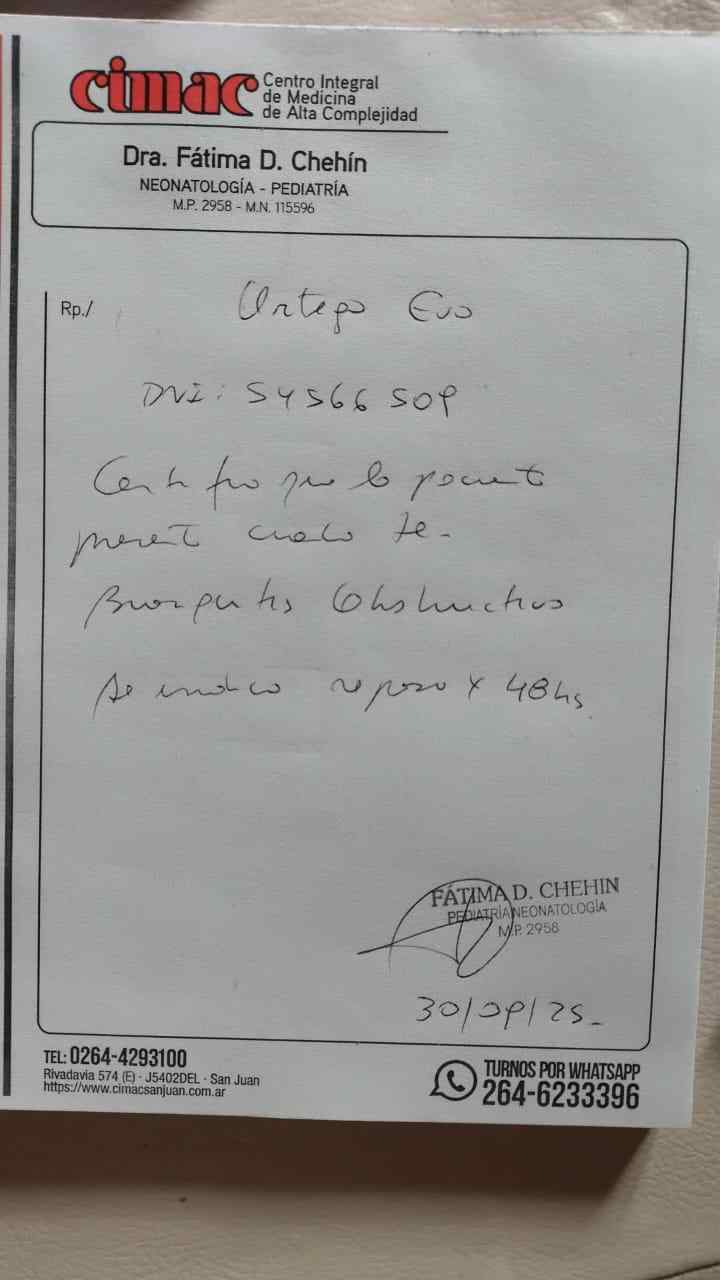 cimac Centro Integral
de Medicina
de Alta Complejidad
Dra. Fátima D. Chehín
NEONATOLOGÍA - PEDIATRÍA
M.P. 2958 - M.N. 115596
Rp./
Ortego Evo
DNI: 54566509
Certifico que la paciente
presenta cuadro de.
Bronquitis Obstructiva
Se indica reposo x 48hs.
FÁTIMA D. CHEHIN
PEDIATRÍA NEONATOLOGÍA
M.P. 2958
30/09/25_
TEL: 0264-4293100
Rivadavia 574 (E) - J5402DEL - San Juan
https://www.cimacsanjuan.com.ar
TURNOS POR WHATSAPP
264-6233396